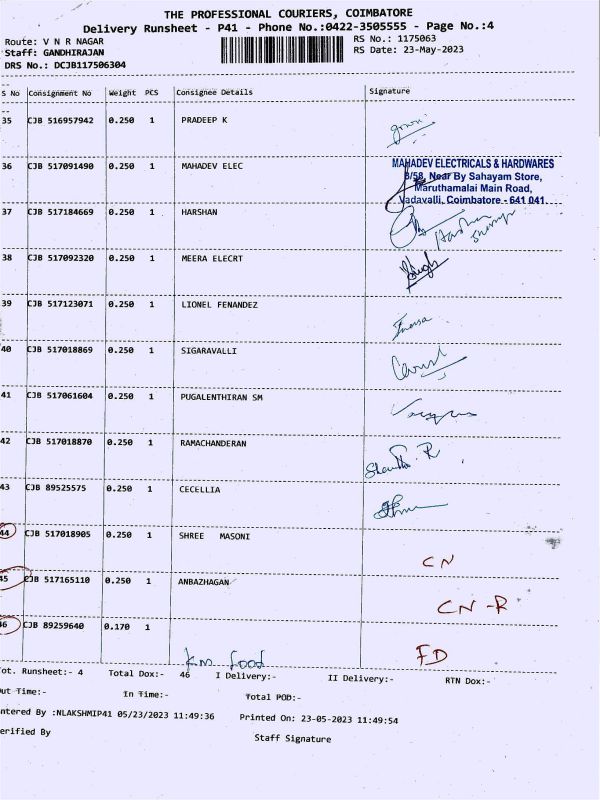 THE PROFESSIONAL COURIERS, COIMBATORE
Delivery Runsheet - P41 - Phone No.:0422-3505555 - Page No.:4
Route: V N R NAGAR
RS No.: 1175063
Staff: GANDHIRAJAN
RS Date: 23-May-2023
DRS No.: DCJB117506304
S No Consignment No Weight PCS Consignee Details Signature
35 CJB 516957942 0.250 1 PRADEEP K
36 CJB 517091490 0.250 1 MAHADEV ELEC
MAHADEV ELECTRICALS & HARDWARES
3/58, Near By Sahayam Store,
Maruthamalai Main Road,
Vadavalli, Coimbatore - 641 041.
37 CJB 517184669 0.250 1 HARSHAN
38 CJB 517092320 0.250 1 MEERA ELECRT
39 CJB 517123071 0.250 1 LIONEL FENANDEZ
40 CJB 517018869 0.250 1 SIGARAVALLI
41 CJB 517061604 0.250 1 PUGALENTHIRAN SM
42 CJB 517018870 0.250 1 RAMACHANDERAN
43 CJB 89525575 0.250 1 CECELLIA
44 CJB 517018905 0.250 1 SHREE MASONI
CN
45 CJB 517165110 0.250 1 ANBAZHAGAN
CN -R
46 CJB 89259640 0.170 1
Km food FD
ot. Runsheet:- 4 Total Dox:- 46 I Delivery:- II Delivery:- RTN Dox:-
ut Time:- In Time:- Total POD:-
ntered By :NLAKSHMIP41 05/23/2023 11:49:36 Printed On: 23-05-2023 11:49:54
erified By Staff Signature